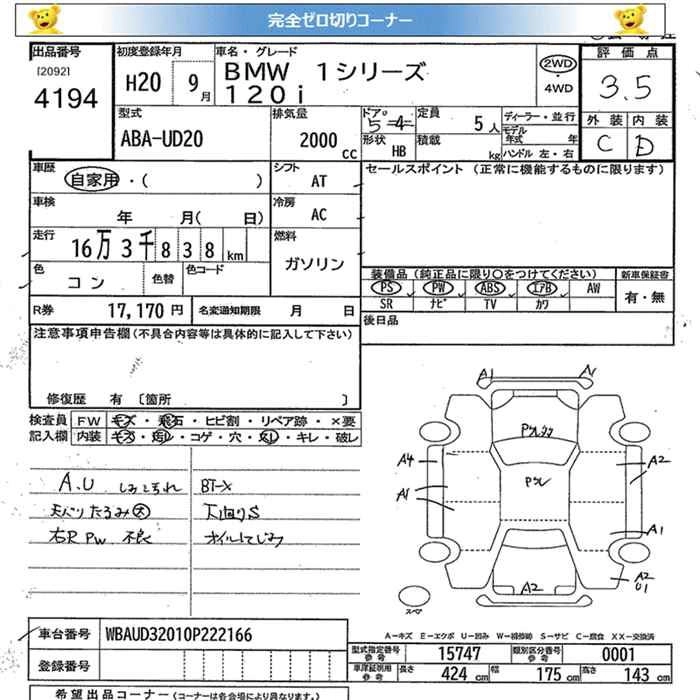 完全ゼロ切りコーナー
出品番号
[2092]
4194
初度登録年月
H20 9月
車名・グレード
BMW 1シリーズ
120i
2WD
・
4WD
評価点
3.5
外装 内装
C D
型式
ABA-UD20
排気量
2000
CC
ドア
5=4
形状
HB
定員
5人
積載
kg
ディーラー・並行
モデル
年式 年
ハンドル 左・右
車歴
自家用・( )
シフト
AT
セールスポイント (正常に機能するものに限ります)
車検
年 月( 日)
冷房
AC
走行
16万3千838km
燃料
ガソリン
色
コン
色替
色コード
R券
17,170 円
名変通知期限 月 日
装備品(純正品に限り○をつけてください)
PS PW ABS エアB AW
SR ナビ TV カワ
新車保証書
有・無
後日品
注意事項申告欄(不具合内容等は具体的に記入して下さい)
修復歴 有 〔箇所 〕
検査員
記入欄
FW キズ・飛石・ヒビ割・リペア跡・×要
内装 キズ・汚レ・コゲ・穴・欠し・キレ・破レ
A.U しみこすれ
天バリたるみ大
右R PW 不良
BT-X
下回りS
オイルにじみ
A1
A4
A1
A2
A1
A2
U1
A2
スペア
A-キズ E-エクボ U-凹み W-補修跡 S-サビ C-腐食 XX-交換済
車台番号
WBAUD32010P222166
登録番号
型式指定番号
参考
15747
類別区分番号
参考
0001
車庫証明用
参考
長さ
424 cm
幅
175 cm
高さ
143 cm
希望出品コーナー (コーナーは各会場により異なります。)